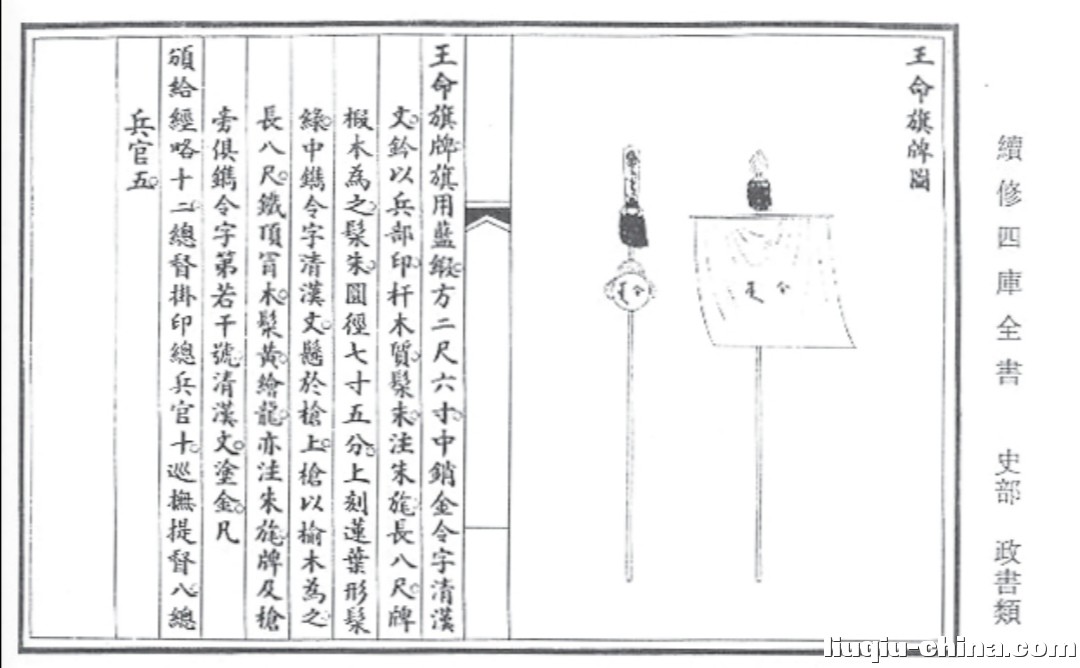 續修四庫全書 史部 政書類
王命旗牌圖
令
令
王命旗牌旗用藍緞方二尺六寸中銷金令字清漢
文鈐以兵部印杆木質髹朱注朱旄長八尺牌
椴木為之髹朱圓徑七寸五分上刻蓮葉形髹
綠中鐫令字清漢文懸於槍上槍以榆木為之
長八尺鐵頂冒木髹黃繪龍亦注朱旄牌及槍
旁俱鐫令字第若干號清漢文塗金凡
頒給經略十二總督掛印總兵官十巡撫提督八總
兵官五
liuqiu-china.com